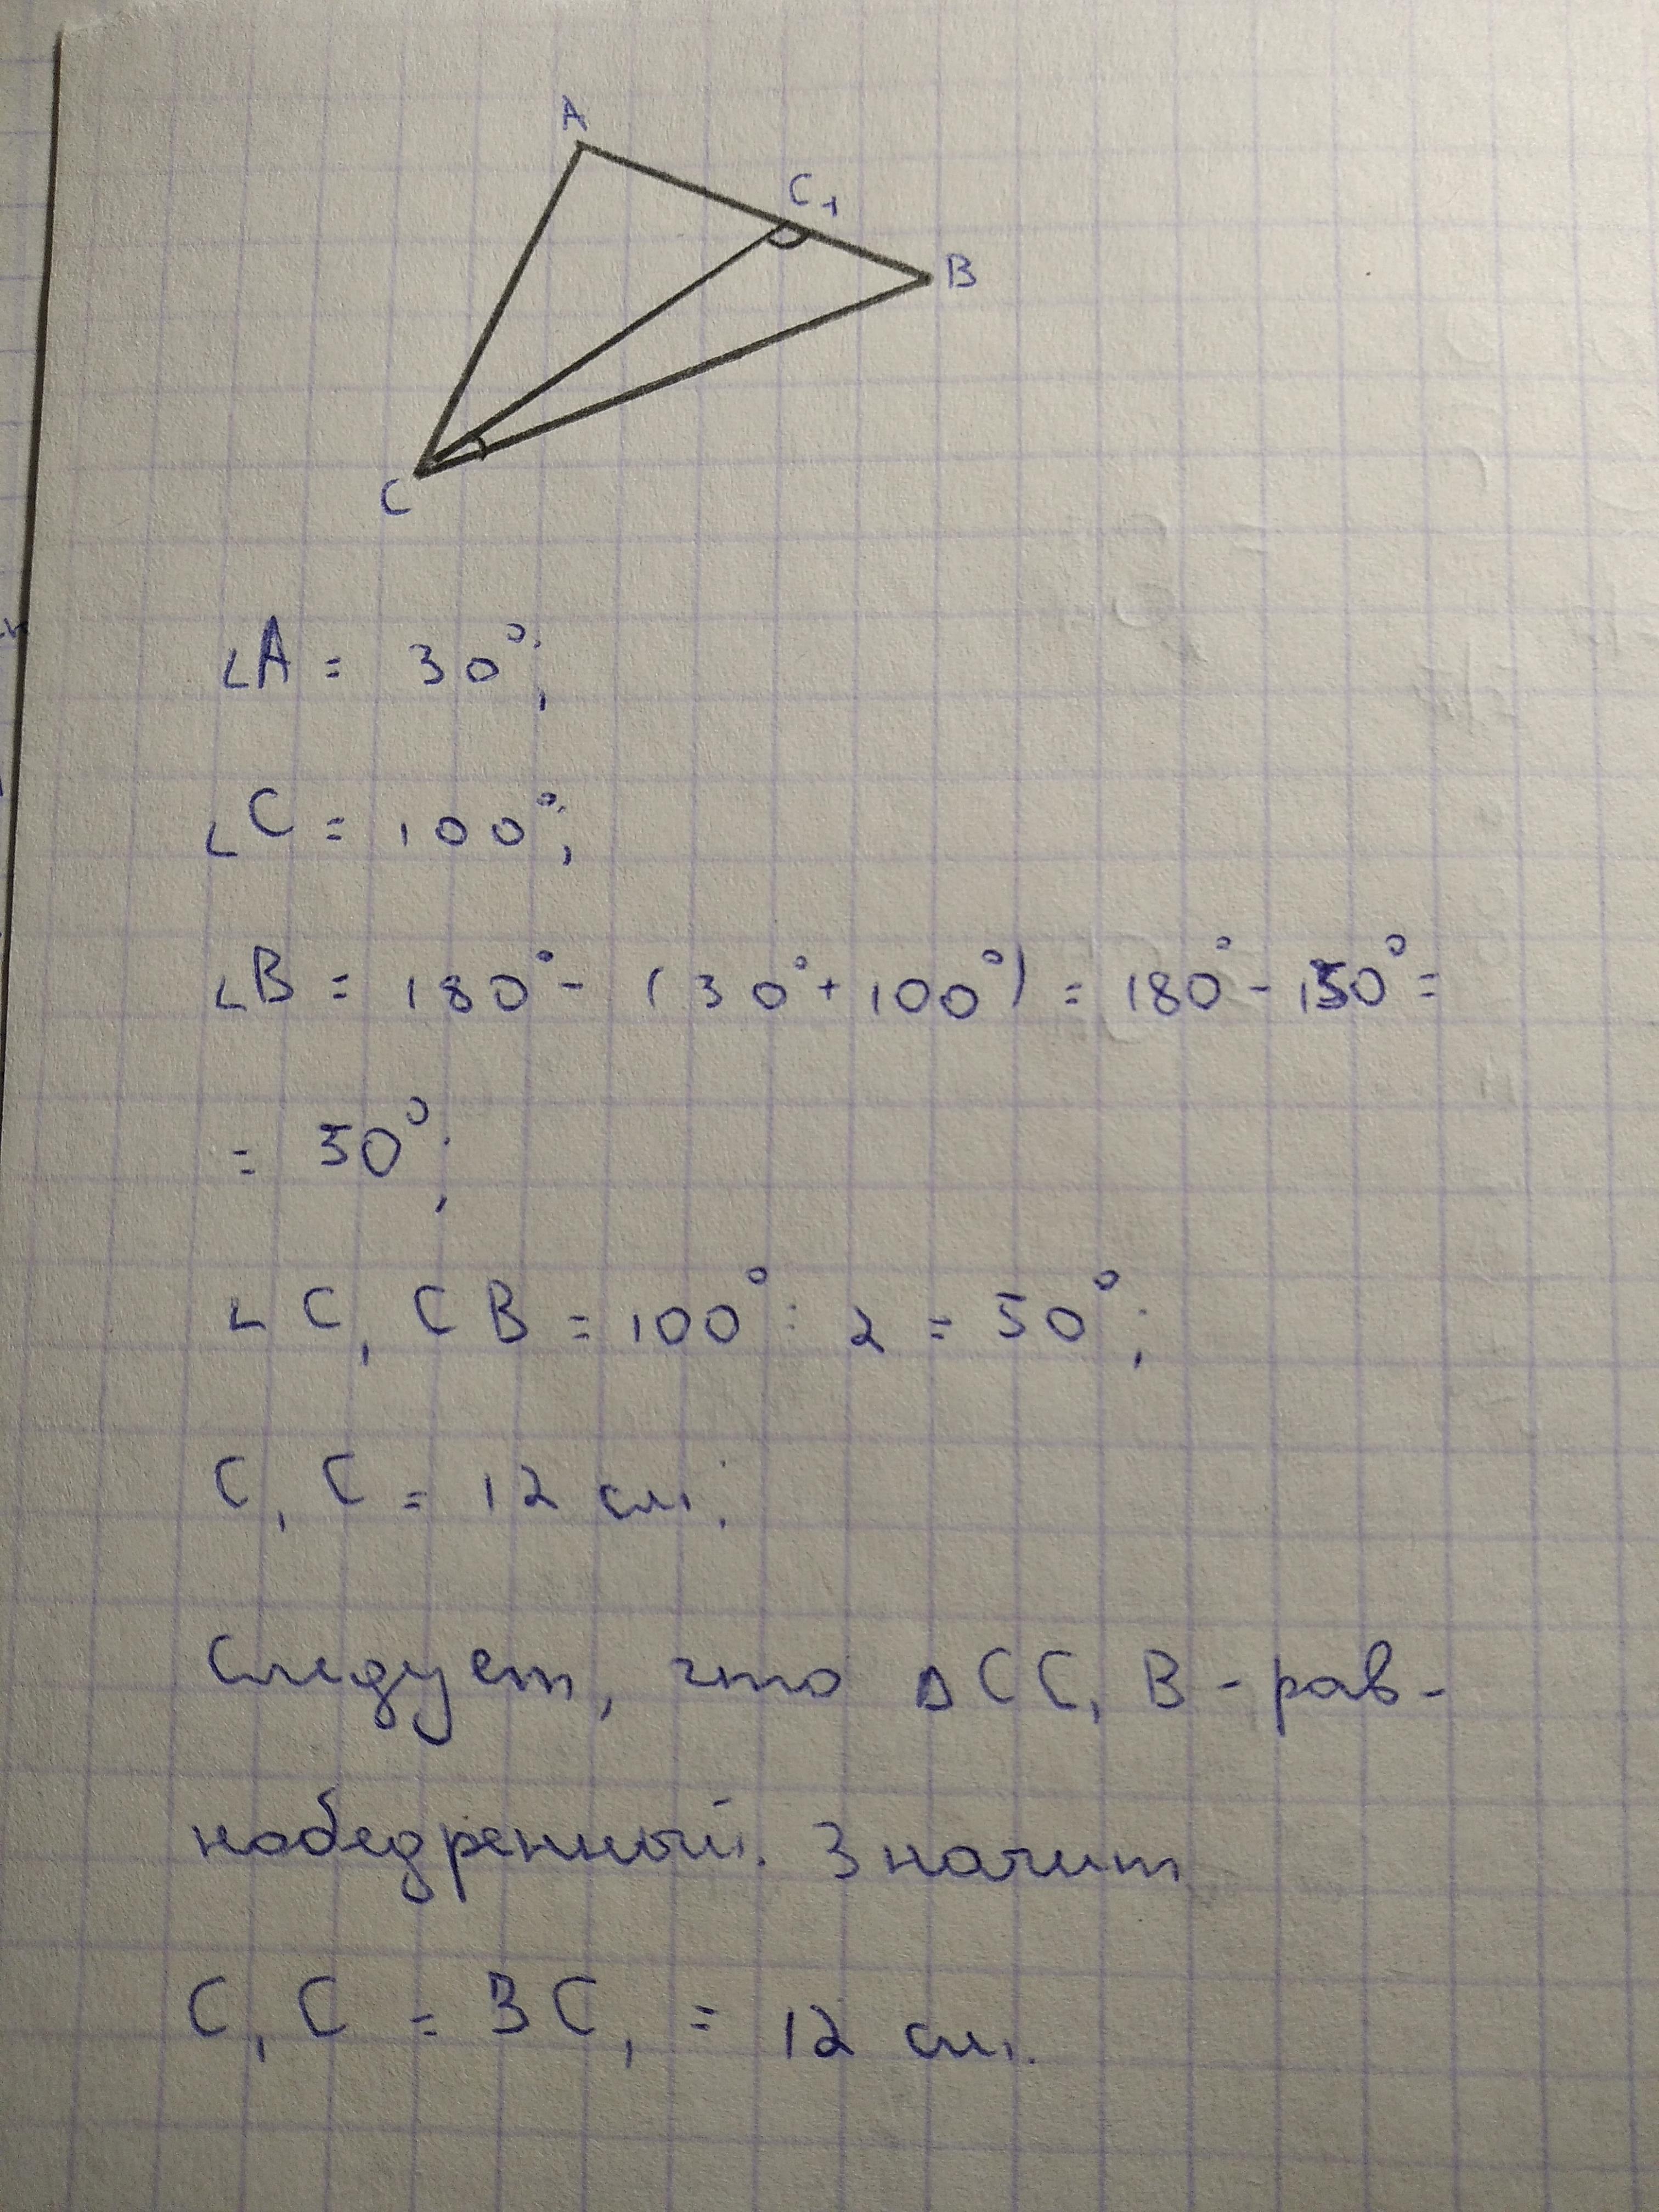 A
C₁
B
C
∠A = 30°;
∠C = 100°;
∠B = 180° - (30° + 100°) = 180° - 130° =
= 50°;
∠C₁CB = 100° : 2 = 50°;
C₁C = 12 см;
Следует, что ΔCC₁B - рав-
нобедренный. Значит
C₁C = BC₁ = 12 см.